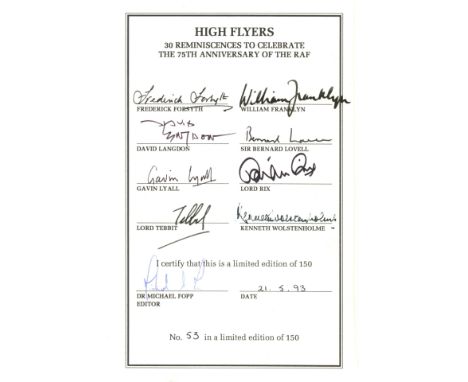 HIGH FLYERS
30 REMINISCENCES TO CELEBRATE
THE 75TH ANNIVERSARY OF THE RAF
Frederick Forsyth William Franklyn
FREDERICK FORSYTH WILLIAM FRANKLYN
LANGDON Bernard Lovell
DAVID LANGDON SIR BERNARD LOVELL
Gavin Lyall Brian Rix
GAVIN LYALL LORD RIX
Tebbit Kenneth Wolstenholme
LORD TEBBIT KENNETH WOLSTENHOLME
I certify that this is a limited edition of 150
21. 5. 93
DR MICHAEL FOPP DATE
EDITOR
No. 53 in a limited edition of 150